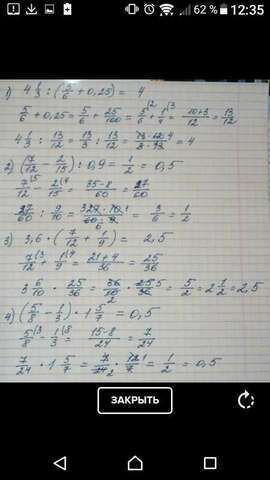 62 % 12:35
1) 4 1/3 : (5/6 + 0,25) = 4
5/6 + 0,25 = 5/6 + 25/100 = 5/6 + 1/4 = 10+3/12 = 13/12
4 1/3 : 13/12 = 13/3 : 13/12 = 13·12/3·13 = 4
2) (7/12 - 2/15) : 0,9 = 1/2 = 0,5
7/12 - 2/15 = 35-8/60 = 27/60
27/60 : 9/10 = 27·10/60·9 = 3/6 = 1/2
3) 3,6 · (7/12 + 1/9) = 2,5
7/12 + 1/9 = 21+4/36 = 25/36
3 6/10 · 25/36 = 36/10 · 25/36 = 5/2 = 2 1/2 = 2,5
4) (5/8 - 1/3) · 1 5/7 = 0,5
5/8 - 1/3 = 15-8/24 = 7/24
7/24 · 1 5/7 = 7/24 · 12/7 = 1/2 = 0,5
ЗАКРЫТЬ